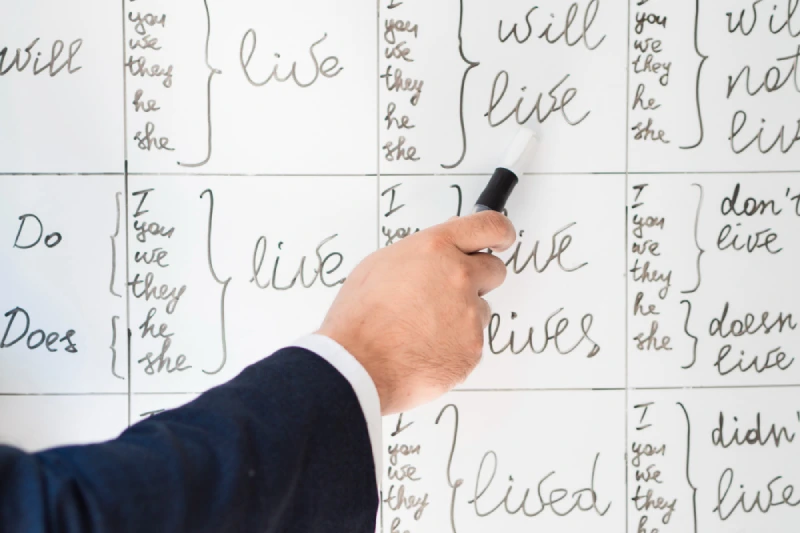 will
you
we
they
he
she
live
I
you
we
they
he
she
will
live
I
you
we
they
he
she
not
Do
Does
I
you
we
they
he
she
live
I
you
live
lives
I
you
we
they
he
she
don't
live
doesn
live
I
you
we
they
lived
I
you
we
they
didn'
live